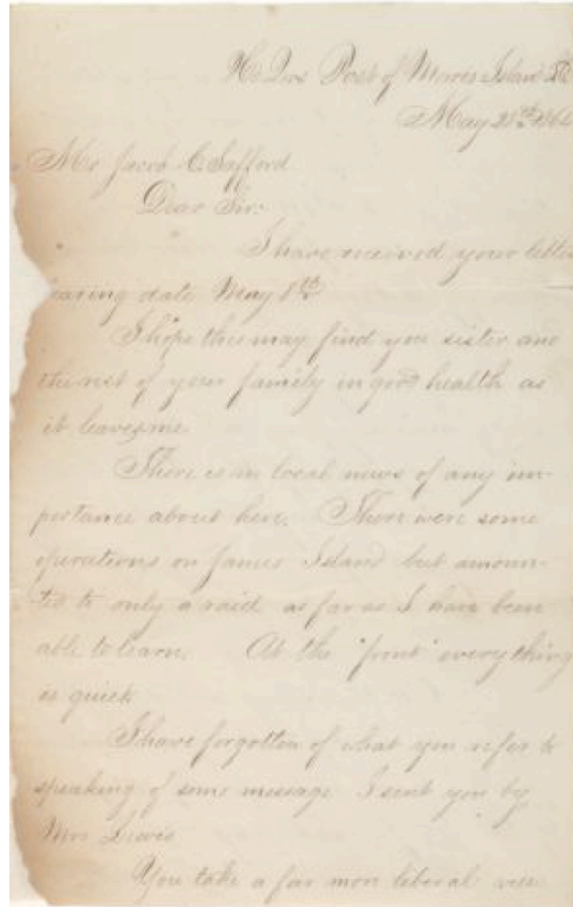 Hd Qrs Post of Morris Island SC
May 28th 1864
Mr Jacob C Safford
Dear Sir:
I have received your letter
earing date May 8th
I hope this may find you sister and
the rest of your family in good health as
it leaves me.
There is no local news of any im-
portance about here. There were some
operations on James Island but amoun-
ted to only a raid as far as I have been
able to learn. At the "front" everything
is quiet
I have forgotten of what you refer to
speaking of some message I sent you by
Mrs Lewis
You take a far more liberal view